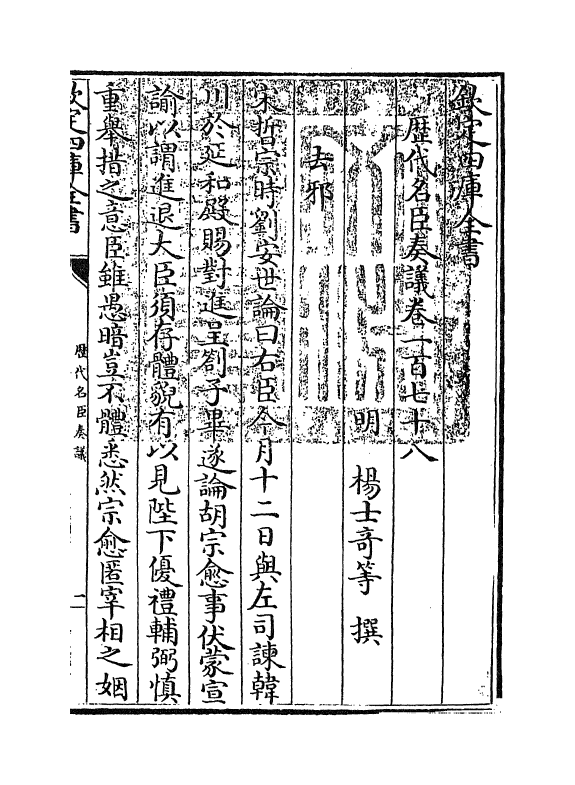 欽定四庫全書
歴代名臣奏議卷一百七十八
明 楊士竒等 撰
去邪
宋哲宗時劉安世論曰右臣今月十二日與左司諫韓
川於延和殿賜對進呈劄子畢遂論胡宗愈事伏蒙宣
諭以謂進退大臣須存體貌有以見陛下優禮輔弼慎
重舉措之意臣雖愚暗豈不體悉然宗愈匿宰相之姻
欽定四庫全書
歴代名臣奏議